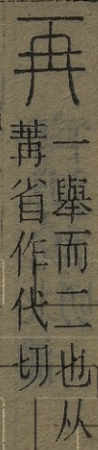 再
一舉而二也从
冓省作代切